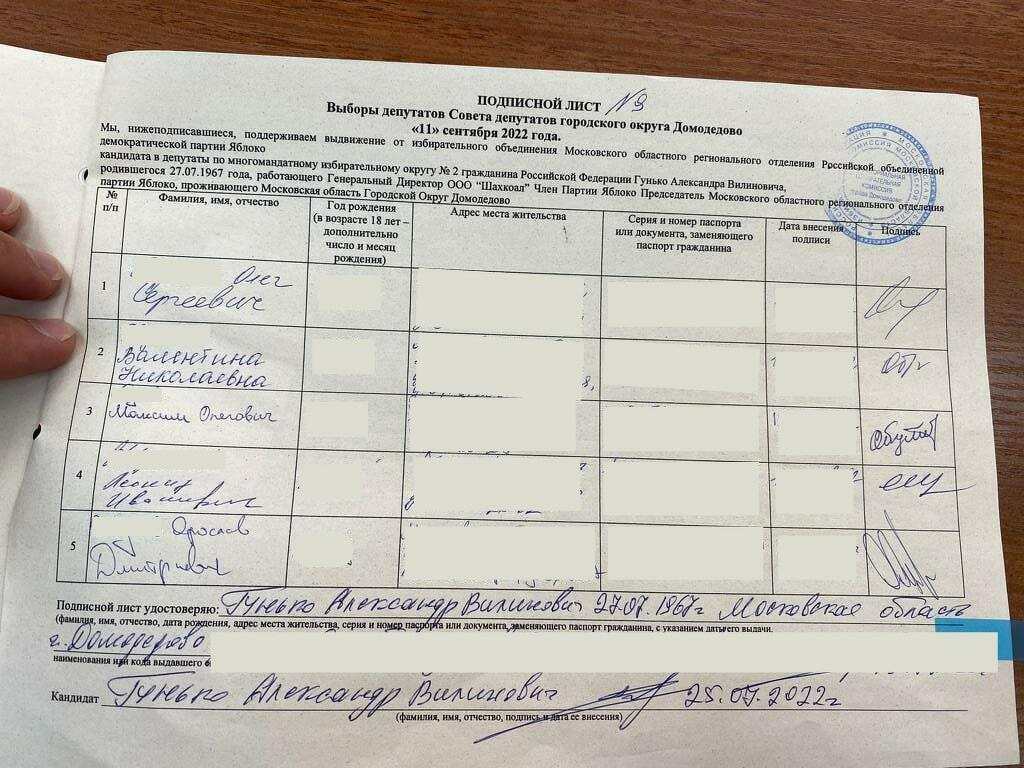 ПОДПИСНОЙ ЛИСТ №9
Выборы депутатов Совета депутатов городского округа Домодедово
«11» сентября 2022 года.
Мы, нижеподписавшиеся, поддерживаем выдвижение от избирательного объединения Московского областного регионального отделения Российской объединенной
демократической партии Яблоко
кандидата в депутаты по многомандатному избирательному округу № 2 гражданина Российской Федерации Гунько Александра Вилиновича,
родившегося 27.07.1967 года, работающего Генеральный Директор ООО "Шахкоал" Член Партии Яблоко Председатель Московского областного регионального отделения
партии Яблоко, проживающего Московская область Городской Округ Домодедово
№ п/п
Фамилия, имя, отчество
Год рождения
(в возрасте 18 лет –
дополнительно
число и месяц
рождения)
Адрес места жительства
Серия и номер паспорта
или документа, заменяющего
паспорт гражданина
Дата внесения
подписи
Подпись
1
Олег
Сергеевич
2
Валентина
Николаевна
3
Максим Олегович
4
Леонид
Иванович
5
Ярослав
Дмитриевич
Подписной лист удостоверяю: Гунько Александр Вилинович 27.07.1967г Московская область
(фамилия, имя, отчество, дата рождения, адрес места жительства, серия и номер паспорта или документа, заменяющего паспорт гражданина, с указанием даты его выдачи,
г. Домодедово
наименования или кода выдавшего
Кандидат Гунько Александр Вилинович 25.07.2022г
(фамилия, имя, отчество, подпись и дата ее внесения)